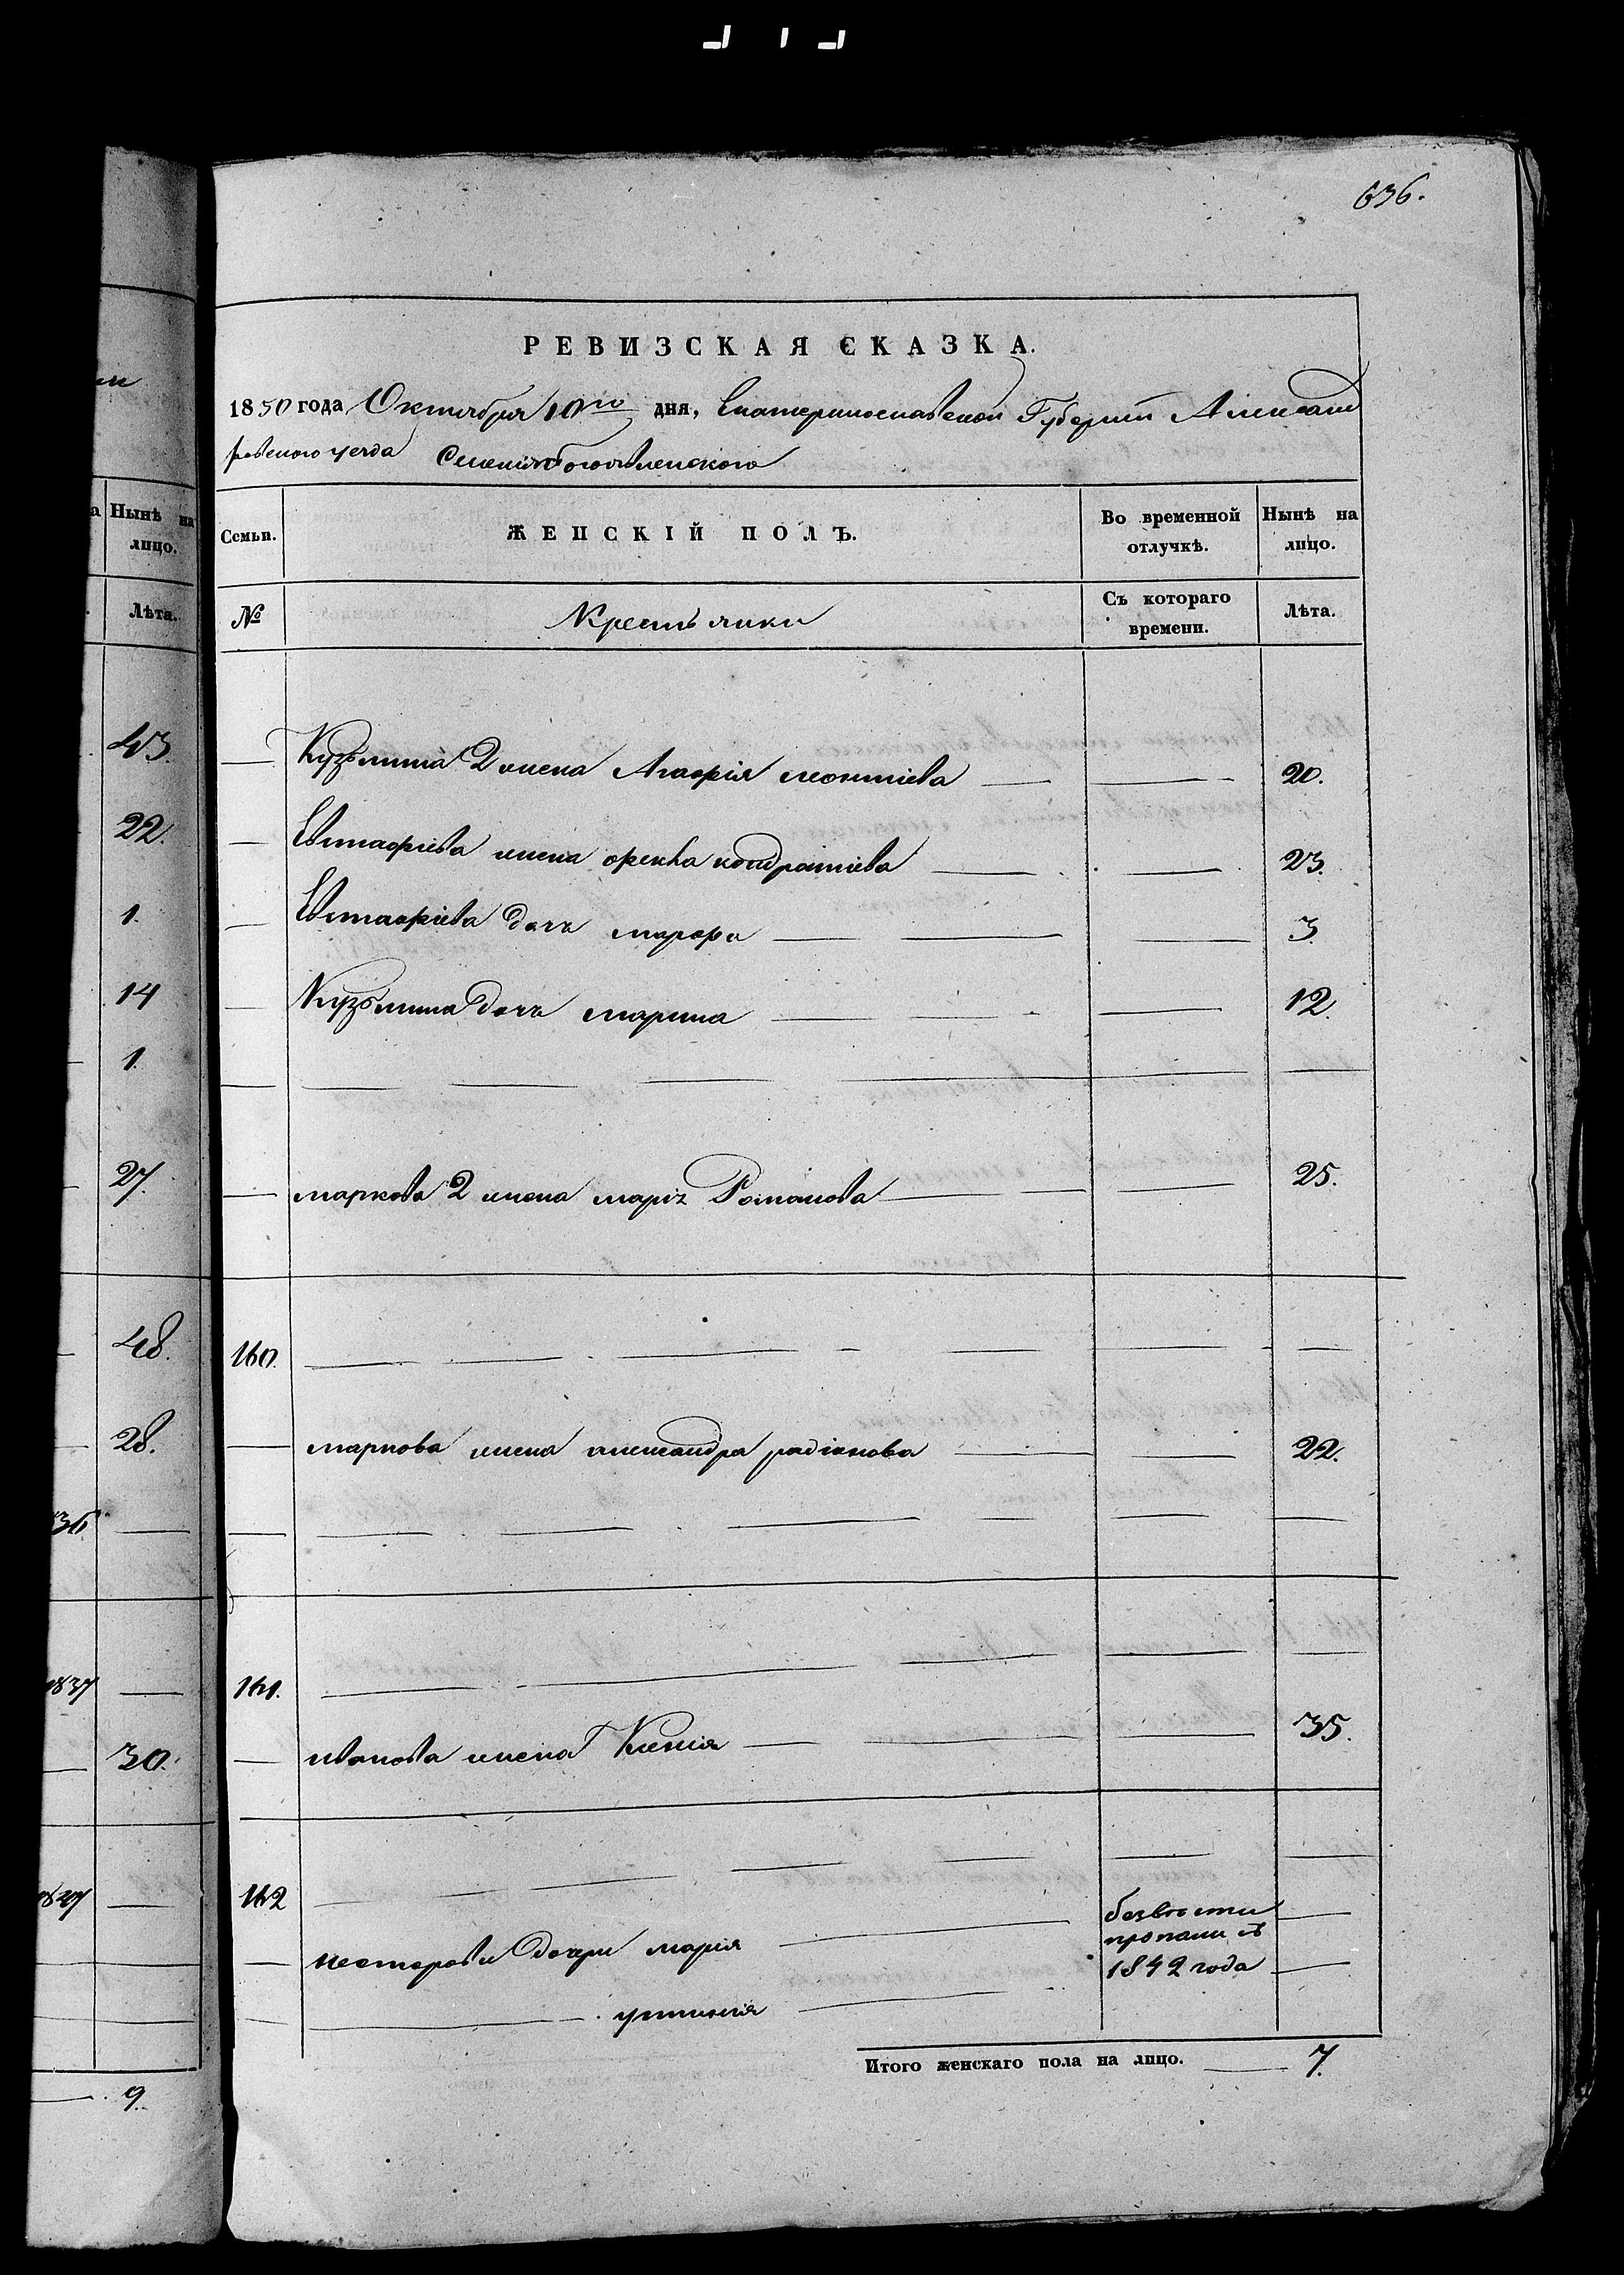 636.
РЕВИЗСКАЯ СКАЗКА.
1850 года Октября 10го дня, Екатеринославской Губернiи Александ
ровского уезда Селенiя Богоявленского
а Нынѣ на лицо.
Лѣта.
43.
22.
1.
14
1.
27.
48.
28.
836
1837
30.
1847
9.
Семьи.
ЖЕНСКІЙ ПОЛЪ.
Во временной отлучкѣ.
Нынѣ на лицо.
№
Крестьянки
Съ котораго времени.
Лѣта.
— Кузьмина 2 жена Агафiя леонтiева — — 20.
— Евстафiева жена фекла кондратiева — — 23.
— Евстафiева дочь марфа — — 3.
— Кузьмина дочь марина — — 12.
— маркова 2 жена марiя Романова — — 25.
160.
— маркова жена александра радiонова — — 22.
161.
— иванова жена Ксенiя — — 35.
162
— нестеровы дочери марiя — безвести —
пропали съ
1842 года —
— устинiя —
Итого женскаго пола на лицо. — 7.